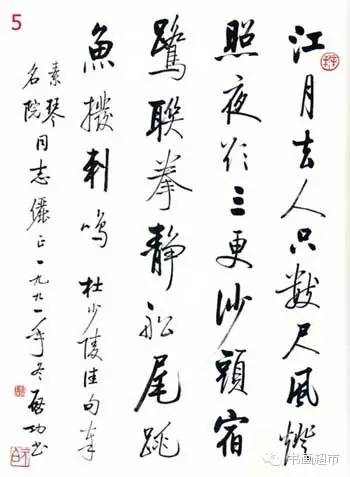 5
江月去人只數尺風燈
照夜欲三更沙頭宿
鷺聯拳静船尾跳
魚撥剌鳴 杜少陵佳句奉
素琴
名院
同志儷正一九九一年冬啟功書
书画超市